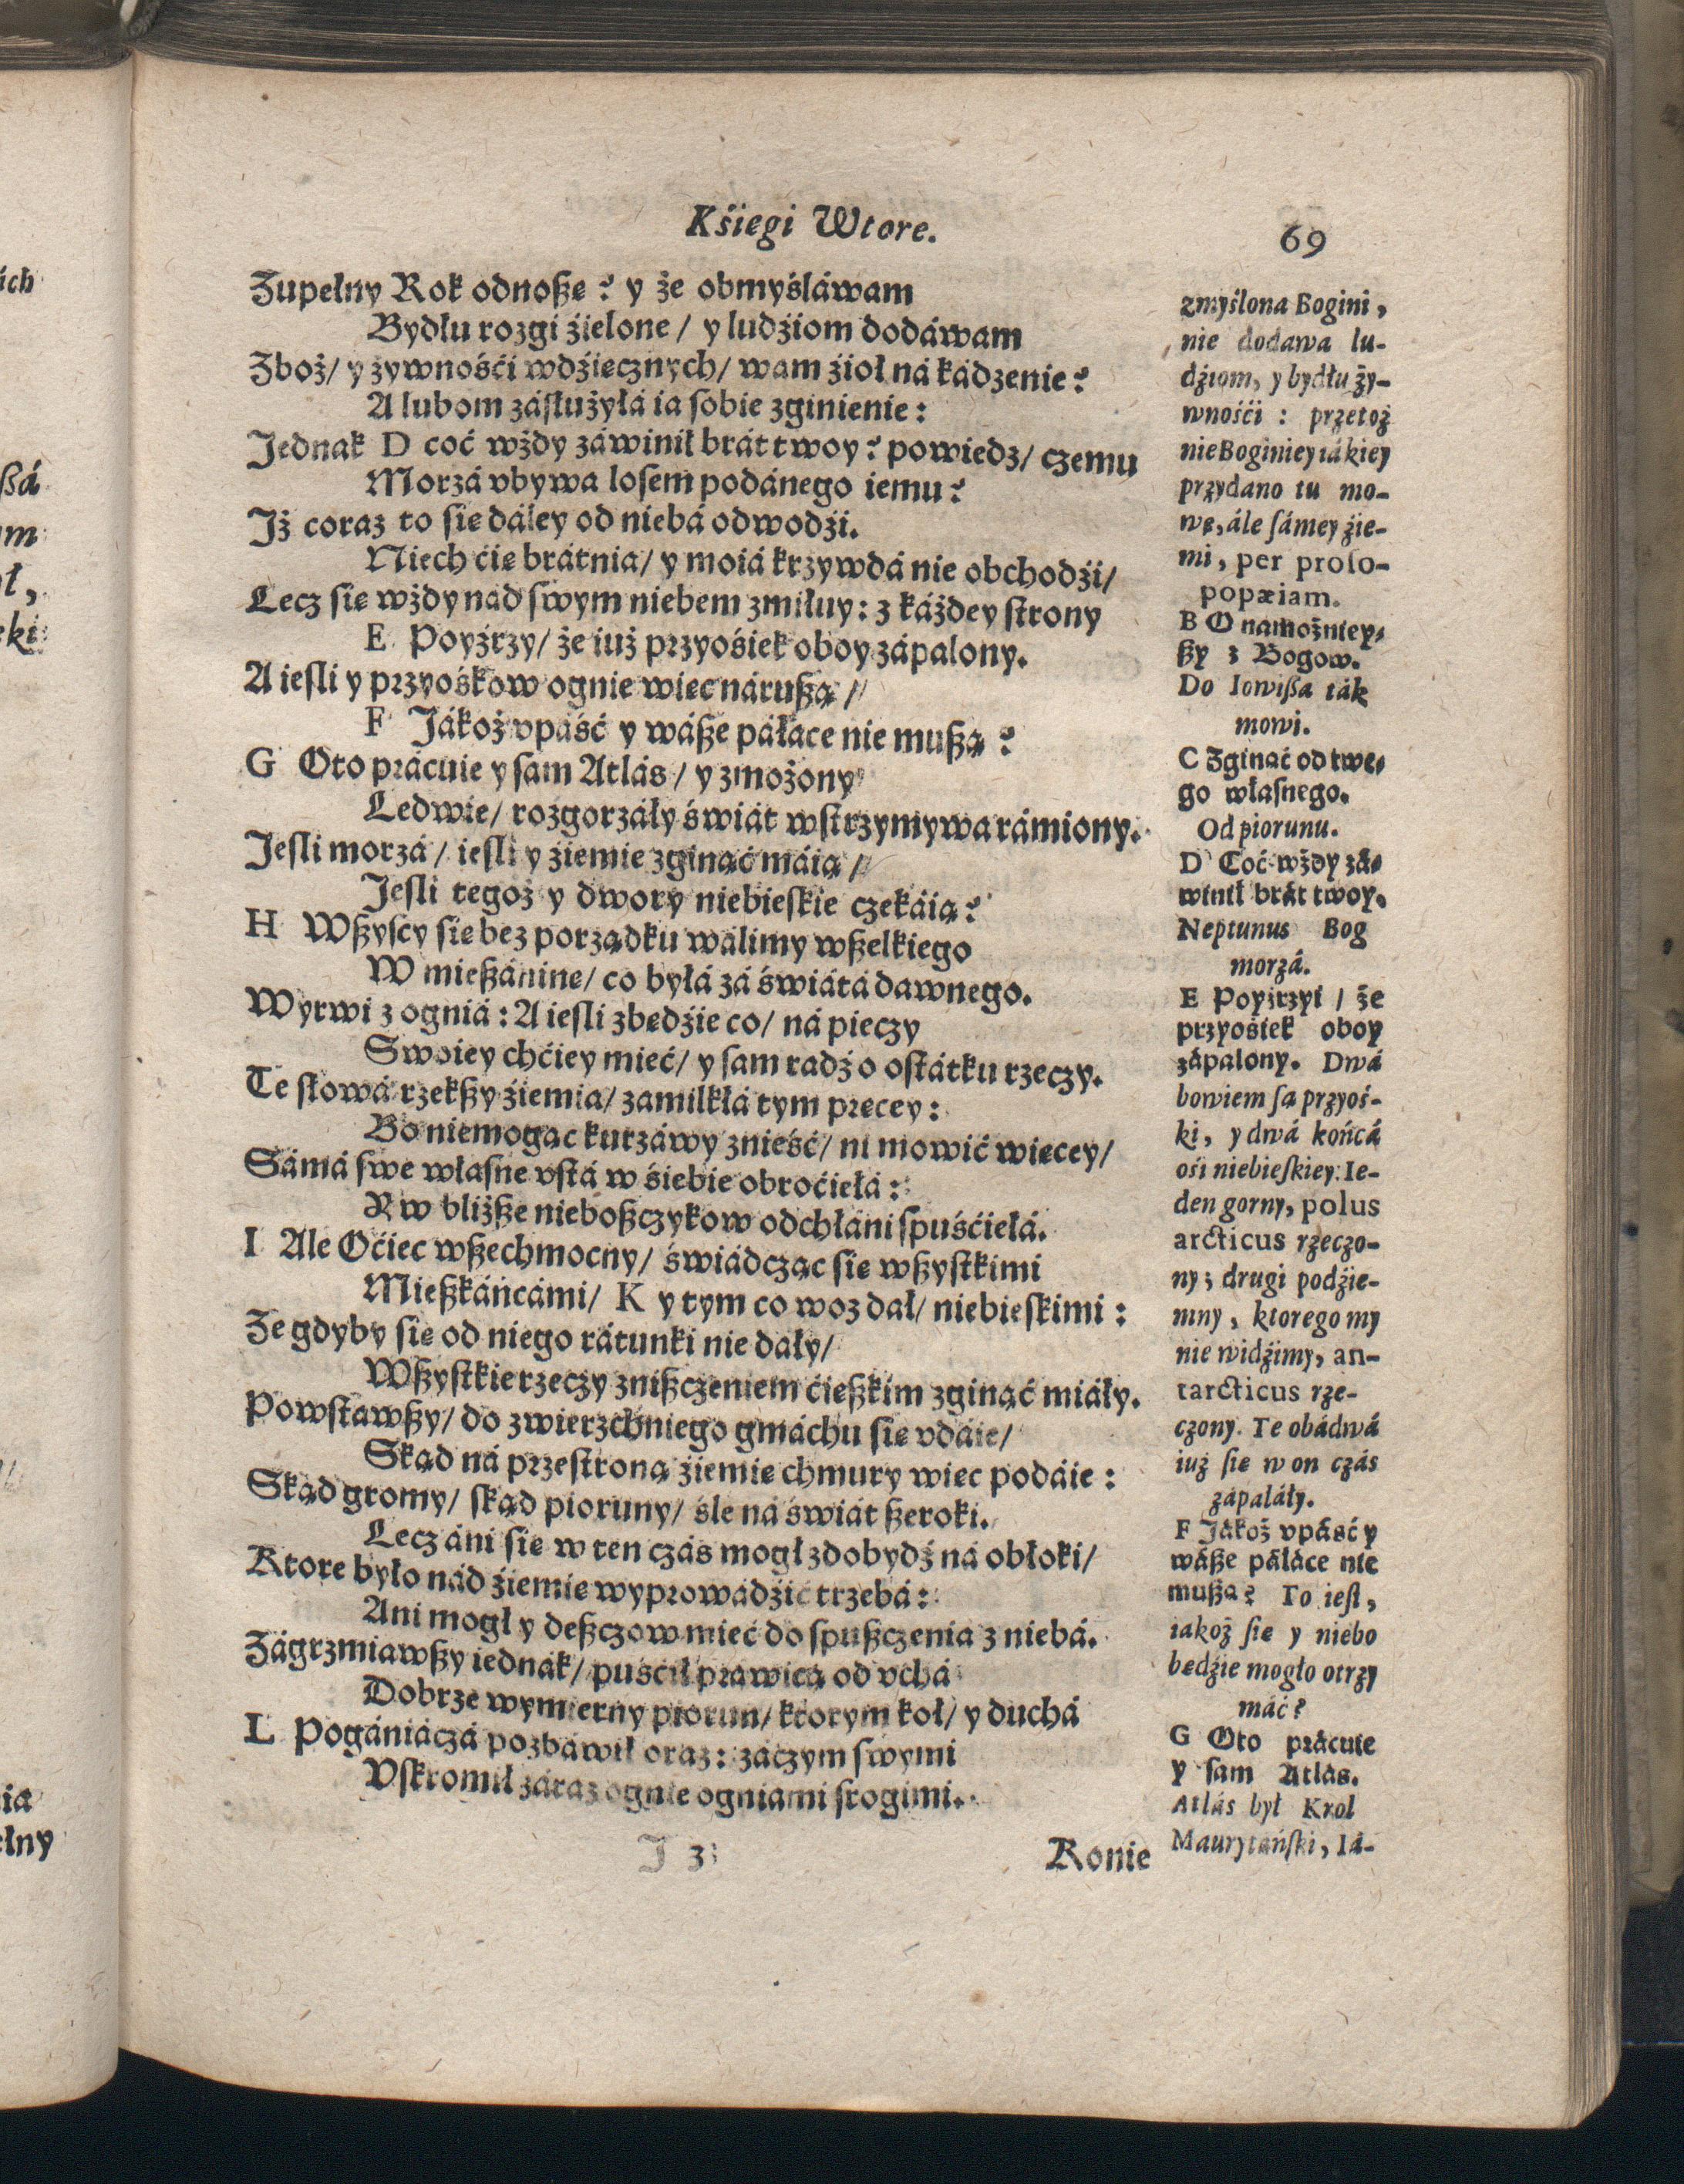 Kśiegi Wtore.
69
Zupełny Rok odnoßę? y że obmyśláwam
Bydłu rozgi źielone / y ludźiom dodáwam
Zboż/ y żywnośći wdźięcznych/ wam źioł ná kádzenie?
A lubom zásłużyłá ia sobie zginienie:
Jednak D coć wżdy záwinił brát twoy? powiedz/ czemu
Morzá vbywa losem podánego iemu?
Iż coraz to się dáley od niebá odwodźi.
Niech ćię brátnia/ y moiá krzywdá nie obchodźi/
Lecz się wżdy nád swym niebem zmiłuy: z káżdey strony
E Poyźrzy/ że iuż przyośiek oboy zápalony.
A iesli y przyośkow ognie więc nárußą /
F Jákoż vpáść y wáße páłace nie mußą?
G Oto prácuie y sam Atlás / y zmożony
Ledwie/ rozgorzáły świát wstrzymywa rámiony.
Jesli morzá / iesli y źiemie zginąć máią /
Jesli tegoż y dwory niebieskie czekáią?
H Wßyscy się bez porządku walimy wßelkiego
W mießáninę/ co byłá zá świátá dawnego.
Wyrwi z ogniá: A iesli zbędźie co/ ná pieczy
Swoiey chćiey mieć/ y sam radź o ostátku rzeczy.
Te słowá rzekßy źiemia/ zamilkłá tym pręcey:
Bo niemogąc kurzáwy znieść/ ni mowić więcey/
Sámá swe własne vstá w śiebie obroćiełá:
R w bliżße nieboßczykow odchłáni spuśćiełá.
I Ale Oćiec wßechmocny/ świádcząc się wßystkimi
Mießkáńcámi/ K y tym co woz dał/ niebieskimi:
Że gdyby się od niego rátunki nie dały/
Wßystkie rzeczy znißczeniem ćięßkim zginąć miáły.
Powstawßy/ do zwierzchniego gmáchu się vdáie/
Skąd ná przestroną źiemię chmury więc podáie:
Skąd gromy/ skąd pioruny/ śle ná świát ßeroki.
Lecz áni się w ten czás mogł zdobydź ná obłoki/
Ktore było nád źiemię wyprowádźić trzebá:
Ani mogł y deßczow mieć do spußczenia z niebá.
Zágrzmiawßy iednák/ puśćił prawicą od vchá
Dobrze wymierny piorun/ ktorym koł/ y duchá
L Pogániáczá pozbáwił oraz: záczym swymi
Vskromił záraz ognie ogniami srogimi.
J 3
Ronie
zmyślona Bogini,
nie dodawa lu-
dźiom, y bydłu ży-
wnośći : przetoż
nie Boginiey iákiey
przydano tu mo-
wę, ále sámey źie-
mi, per proso-
popæiam.
B O namożniey-
ßy z Bogow.
Do Iowißa ták
mowi.
C Zginąć od twe-
go własnego.
Od piorunu.
D Coć wżdy zá-
winił brát twoy.
Neptunus Bog
morzá.
E Poyźrzyi / że
przyośiek oboy
zápalony. Dwá
bowiem są przyoś-
ki, y dwá końcá
ośi niebieskiey: Ie-
den gorny, polus
arcticus rzeczo-
ny; drugi podźie-
mny, ktorego my
nie widźimy, an-
tarcticus rze-
czony. Te obádwá
iuż się w on czás
zápaláły.
F Jákoż vpáść y
wáße páłáce nie
mußą? To iest,
iakoż się y niebo
będźie mogło otrzy
máć?
G Oto prácuie
y sam Atlás.
Atlás był Krol
Maurytáński, Iá-